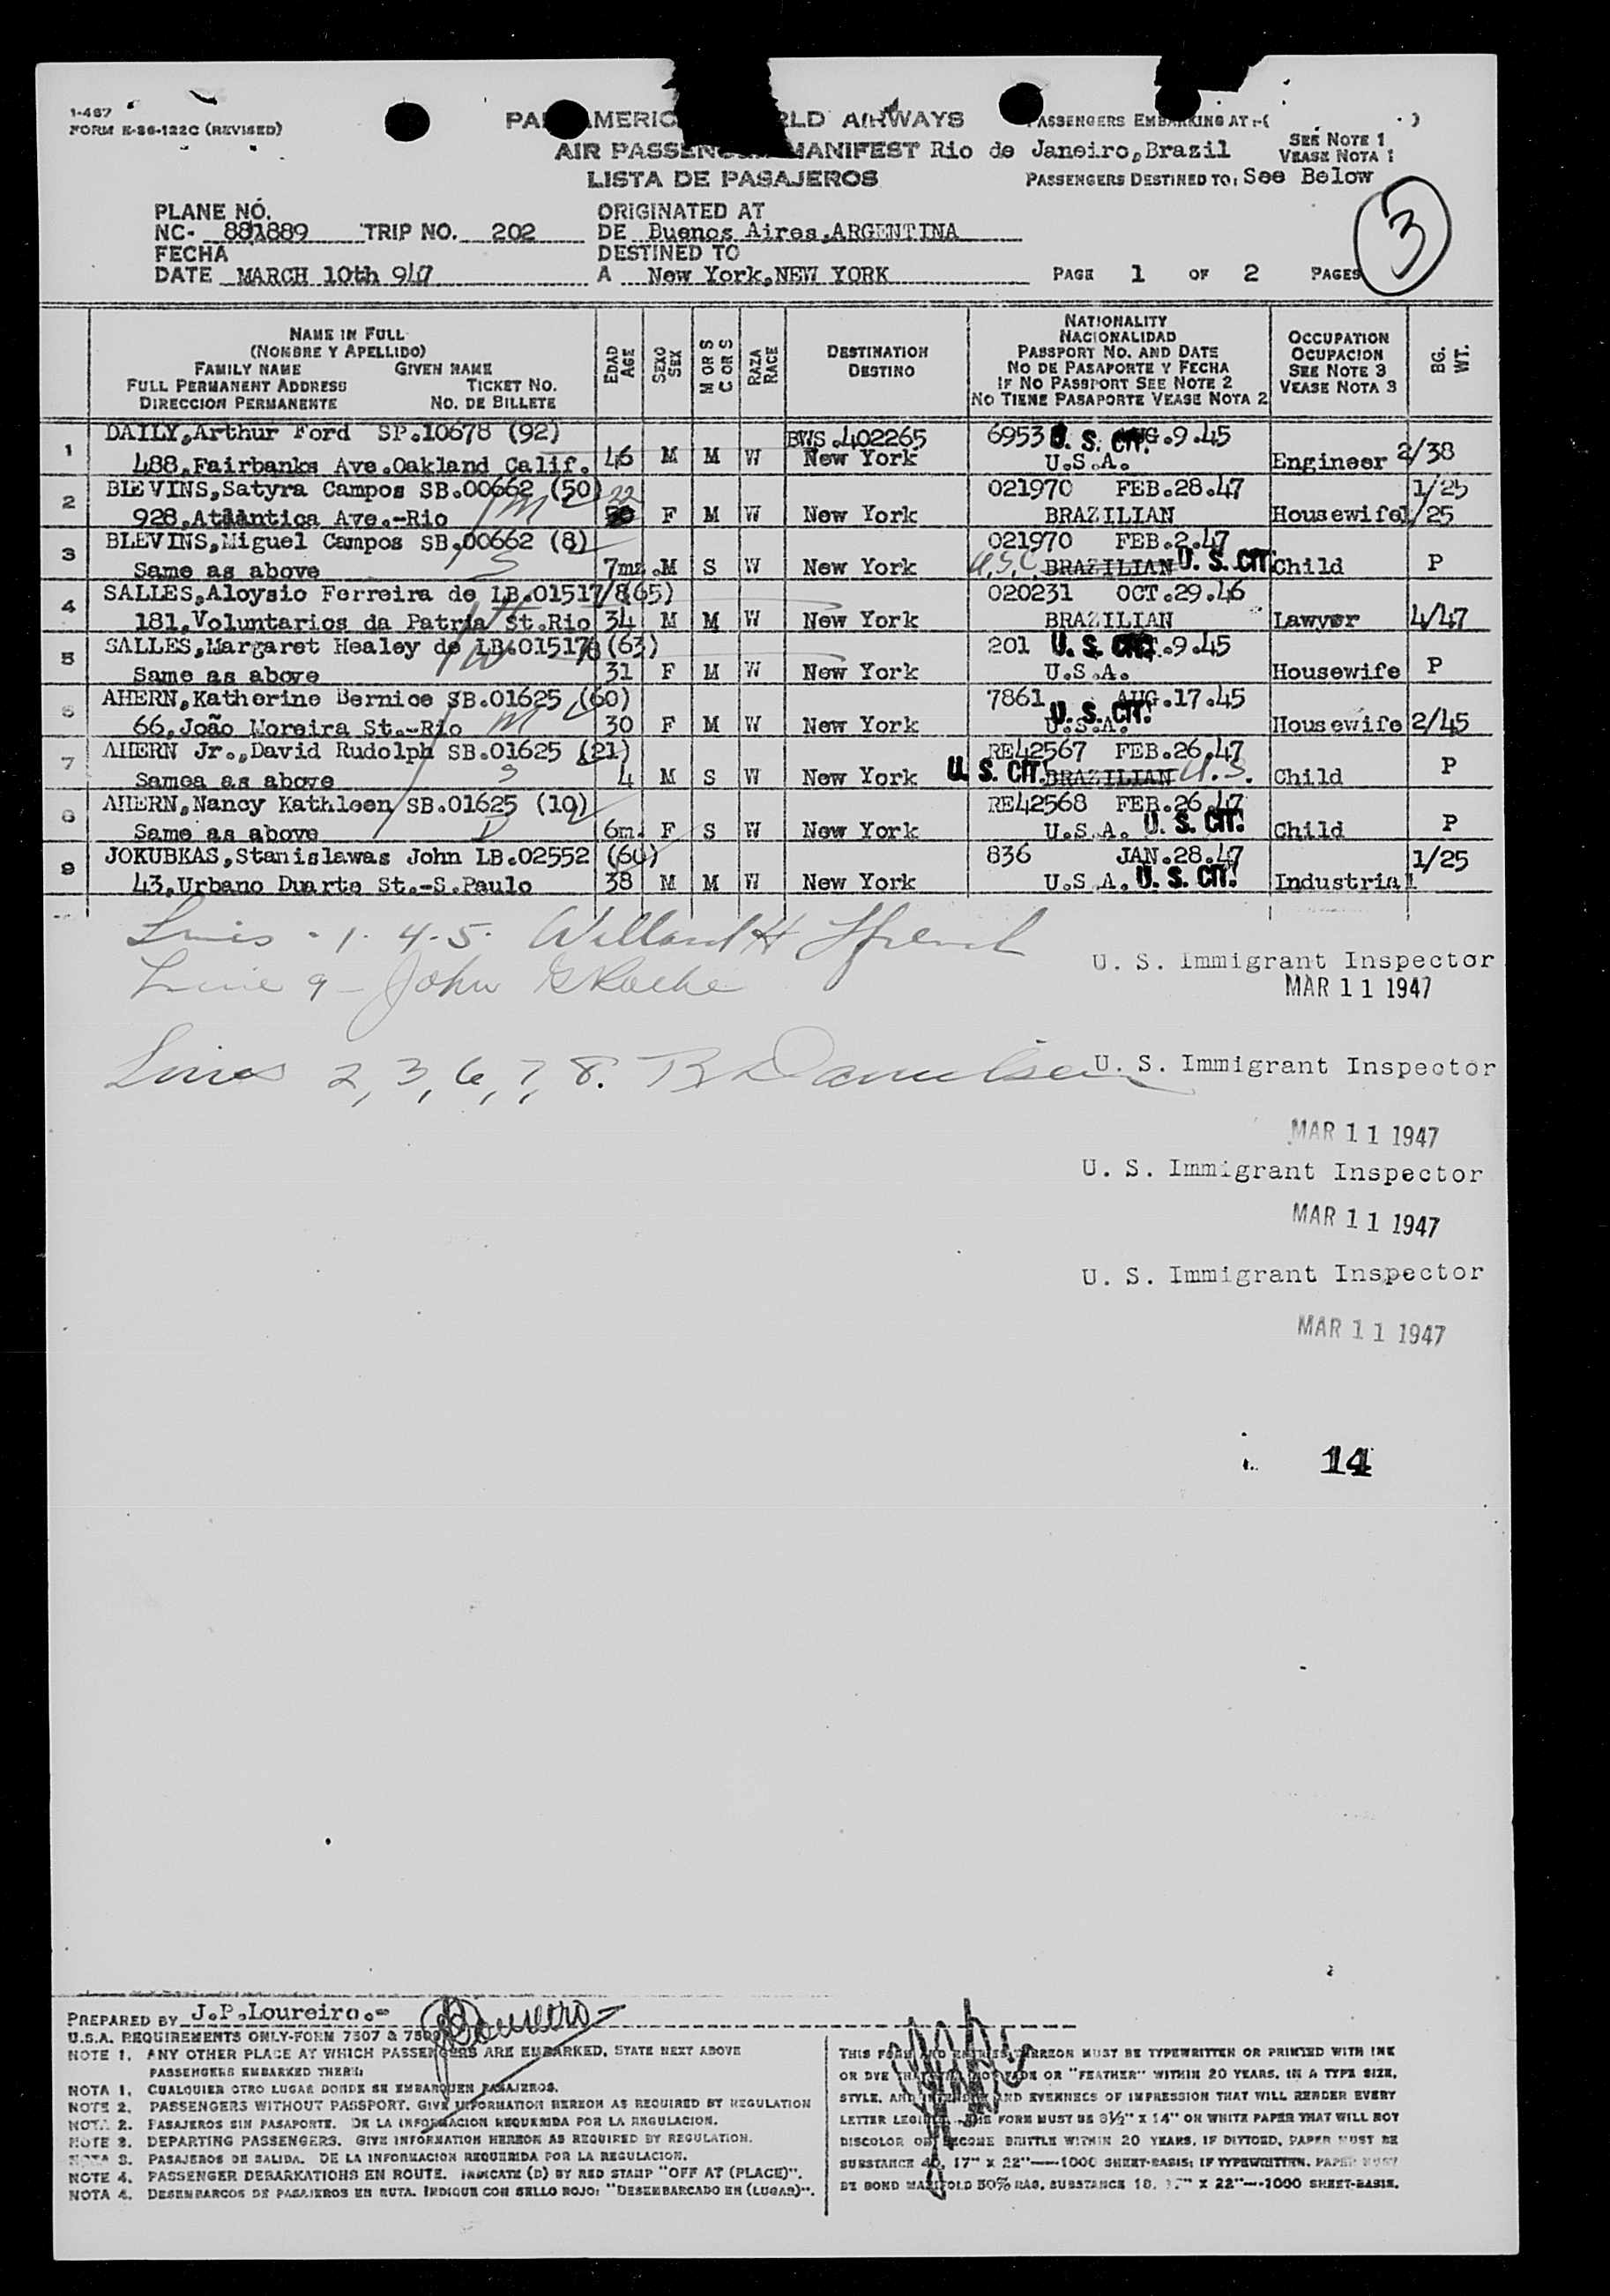 1-467
FORM E-36-122C (REVISED)
PAN AMERIC RLD AIRWAYS
PASSENGERS EMBARKING AT :-( )
SEE NOTE 1
VEASE NOTA 1
AIR PASSENGER MANIFEST Rio de Janeiro,Brazil
LISTA DE PASAJEROS
PASSENGERS DESTINED TO: See Below
3
PLANE NO.
NC- 881889 TRIP NO. 202
ORIGINATED AT
DE Buenos Aires,ARGENTINA
FECHA
DATE MARCH 10th 947
DESTINED TO
A New York,NEW YORK
PAGE 1 OF 2 PAGES
NAME IN FULL
(NOMBRE Y APELLIDO)
FAMILY NAME GIVEN NAME
FULL PERMANENT ADDRESS TICKET NO.
DIRECCION PERMANENTE NO. DE BILLETE
EDAD
AGE
SEXO
SEX
M OR S
C OR S
RAZA
RACE
DESTINATION
DESTINO
NATIONALITY
NACIONALIDAD
PASSPORT NO. AND DATE
NO DE PASAPORTE Y FECHA
IF NO PASSPORT SEE NOTE 2
NO TIENE PASAPORTE VEASE NOTA 2
OCCUPATION
OCUPACION
SEE NOTE 3
VEASE NOTA 3
BG.
WT.
1 DAILY,Arthur Ford SP.10678 (92) BWS.402265 6953 U. S. CIT. .9.45
488,Fairbanks Ave.Oakland Calif. 46 M M W New York U.S.A. Engineer 2/38
2 BLEVINS,Satyra Campos SB.00662 (50) 22 021970 FEB.28.47 1/25
928,Atlântica Ave.-Rio M F M W New York BRAZILIAN Housewife 1/25
3 BLEVINS,Miguel Campos SB.00662 (8) 021970 FEB.2.47
Same as above S 7ms.M S W New York U.S.C. BRAZILIAN U. S. CIT. Child P
4 SALLES,Aloysio Ferreira de LB.01517/8(65) 020231 OCT.29.46
181,Voluntarios da Patria St.Rio 34 M M W New York BRAZILIAN Lawyer 4/47
5 SALLES,Margaret Healey de LB.01517/8 (63) 201 U. S. CIT. .9.45
Same as above 31 F M W New York U.S.A. Housewife P
6 AHERN,Katherine Bernice SB.01625 (60) 7861 AUG.17.45
66,João Moreira St.-Rio M 30 F M W New York U. S. CIT. U.S.A. Housewife 2/45
7 AHERN Jr.,David Rudolph SB.01625 (21) RE42567 FEB.26.47
Samea as above S 4 M S W New York U. S. CIT. BRAZILIAN U.S. Child P
8 AHERN,Nancy Kathleen SB.01625 (10) RE42568 FEB.26.47
Same as above D 6m. F S W New York U.S.A. U. S. CIT. Child P
9 JOKUBKAS,Stanislawas John LB.02552 (60) 836 JAN.28.47 1/25
43,Urbano Duarte St.-S.Paulo 38 M M W New York U.S.A. U. S. CIT. Industrial
Lines - 1. 4. 5. Willard H
U. S. Immigrant Inspector
Line 9 - John
MAR 11 1947
Lines 2, 3, 6, 7, 8. B Danielsen
U. S. Immigrant Inspector
MAR 11 1947
U. S. Immigrant Inspector
MAR 11 1947
U. S. Immigrant Inspector
MAR 11 1947
14
PREPARED BY J.P.Loureiro.-
U.S.A. REQUIREMENTS ONLY-FORM 7507 & 7509
NOTE 1. ANY OTHER PLACE AT WHICH PASSENGERS ARE EMBARKED, STATE NEXT ABOVE
PASSENGERS EMBARKED THERE.
NOTA 1. CUALQUIER OTRO LUGAR DONDE SE EMBARQUEN PASAJEROS.
NOTE 2. PASSENGERS WITHOUT PASSPORT. GIVE INFORMATION HEREON AS REQUIRED BY REGULATION
NOTA 2. PASAJEROS SIN PASAPORTE. DE LA INFORMACION REQUERIDA POR LA REGULACION.
NOTE 3. DEPARTING PASSENGERS. GIVE INFORMATION HEREON AS REQUIRED BY REGULATION.
NOTA 3. PASAJEROS DE SALIDA. DE LA INFORMACION REQUERIDA POR LA REGULACION.
NOTE 4. PASSENGER DEBARKATIONS EN ROUTE. INDICATE (D) BY RED STAMP "OFF AT (PLACE)".
NOTA 4. DESEMBARCOS DE PASAJEROS EN RUTA. INDIQUE CON SELLO ROJO: "DESEMBARCADO EN (LUGAR)".
THIS FORM AND ENTRIES THEREON MUST BE TYPEWRITTEN OR PRINTED WITH INK
OR DYE THAT WILL NOT FADE OR "FEATHER" WITHIN 20 YEARS, IN A TYPE SIZE,
STYLE, AND INTENSITY AND EVENNESS OF IMPRESSION THAT WILL RENDER EVERY
LETTER LEGIBLE. THE FORM MUST BE 8½" X 14" ON WHITE PAPER THAT WILL NOT
DISCOLOR OR BECOME BRITTLE WITHIN 20 YEARS. IF DITTOED, PAPER MUST BE
SUBSTANCE 40, 17" X 22"—1000 SHEET-BASIS; IF TYPEWRITTEN, PAPER MUST
BE BOND MANIFOLD 50% RAG, SUBSTANCE 18, 17" X 22"—1000 SHEET-BASIS.